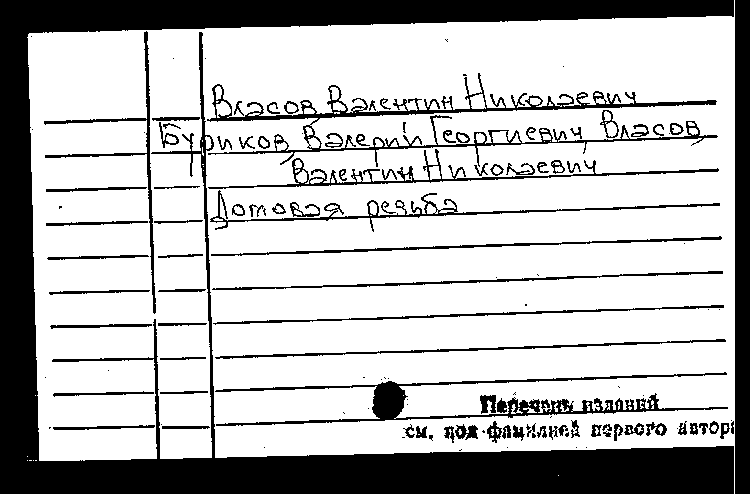 Власов Валентин Николаевич
Буриков, Валерий Георгиевич, Власов,
Валентин Николаевич
Домовая резьба
Перечень изданий
см. под фамилией первого автора